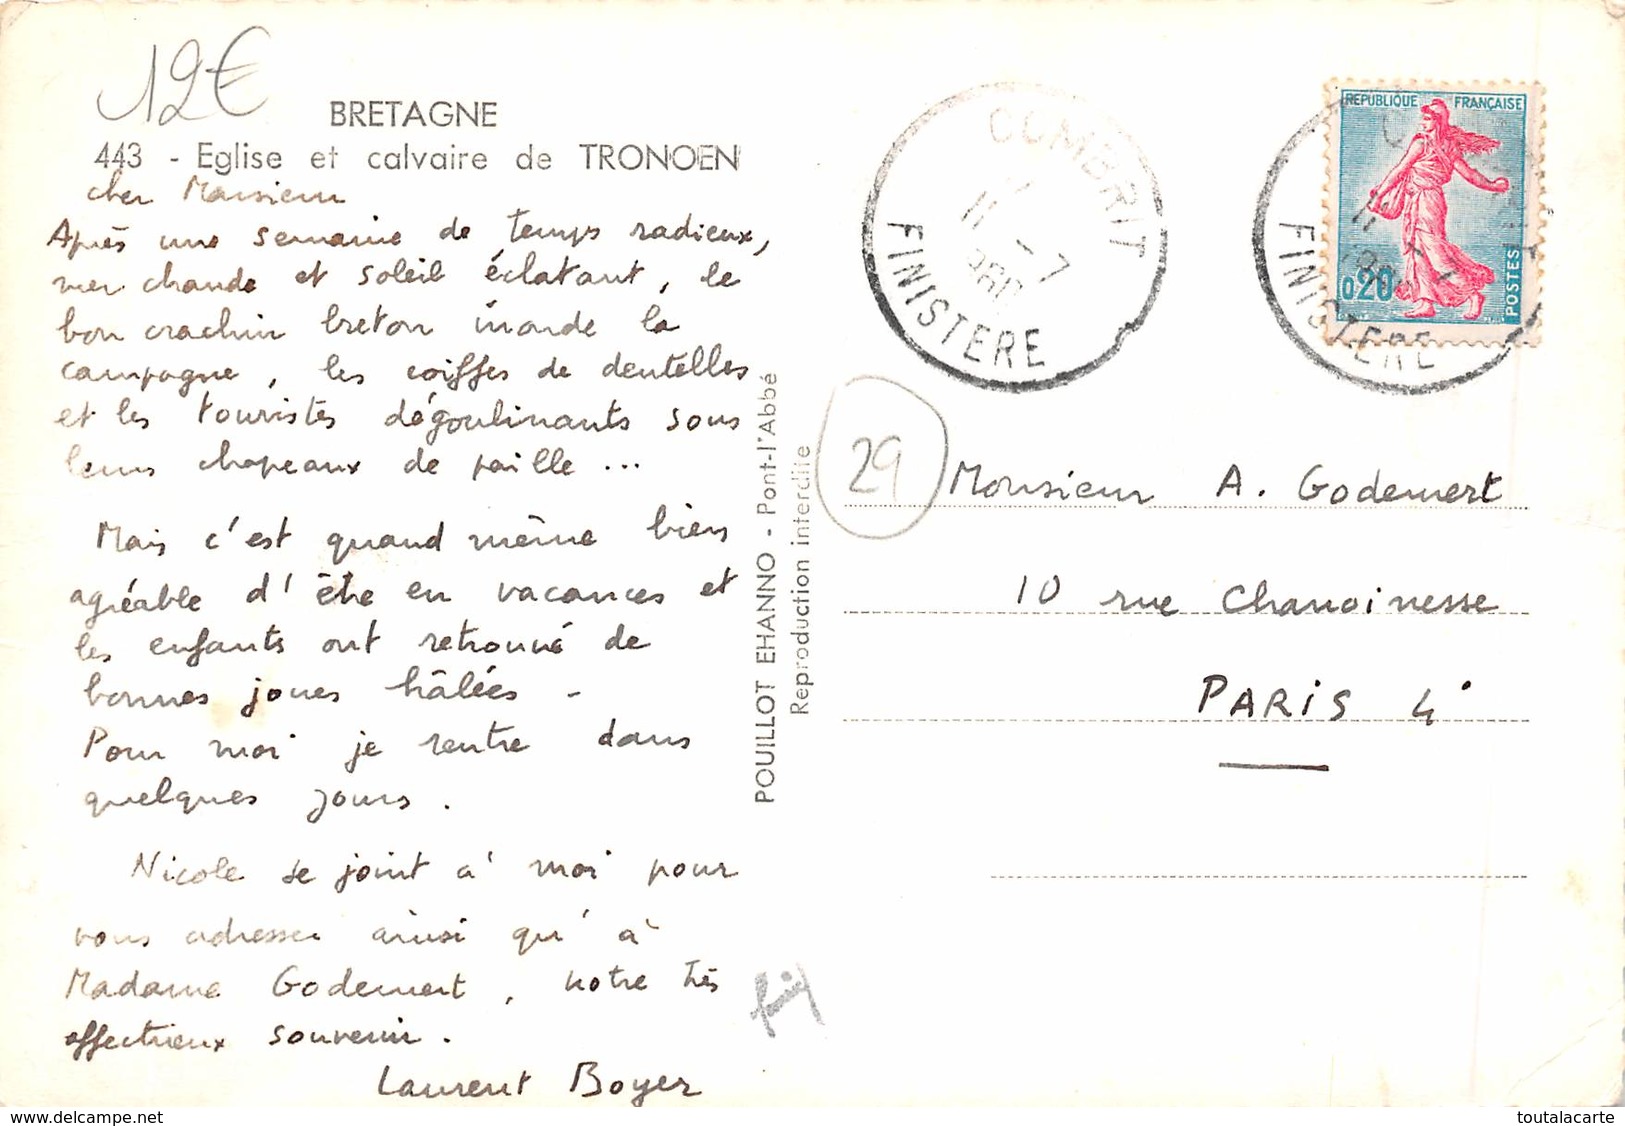 12€
BRETAGNE
443 - Eglise et calvaire de TRONOEN
cher Monsieur
Après une semaine de temps radieux,
mer chaude et soleil éclatant, le
bon crachin breton inonde la
campagne, les coiffes de dentelles
et les touristes dégoulinants sous
leurs chapeaux de paille ...
Mais c'est quand même bien
agréable d'être en vacances et
les enfants ont retrouvé de
bonnes joues hâlées -
Pour moi je rentre dans
quelques jours.
Nicole se joint à moi pour
vous adresser ainsi qu'à
Madame Godemert, notre très
affectueux souvenir.
Laurent Boyer
POUILLOT EHANNO - Pont-l'Abbé
Reproduction interdite
COMBRIT
11 - 7
FINISTERE
REPUBLIQUE FRANÇAISE
0,20
POSTES
FINISTERE
29
Monsieur A. Godemert
10 rue Chanoinesse
PARIS 4°
delcampe.net
toutalacarte